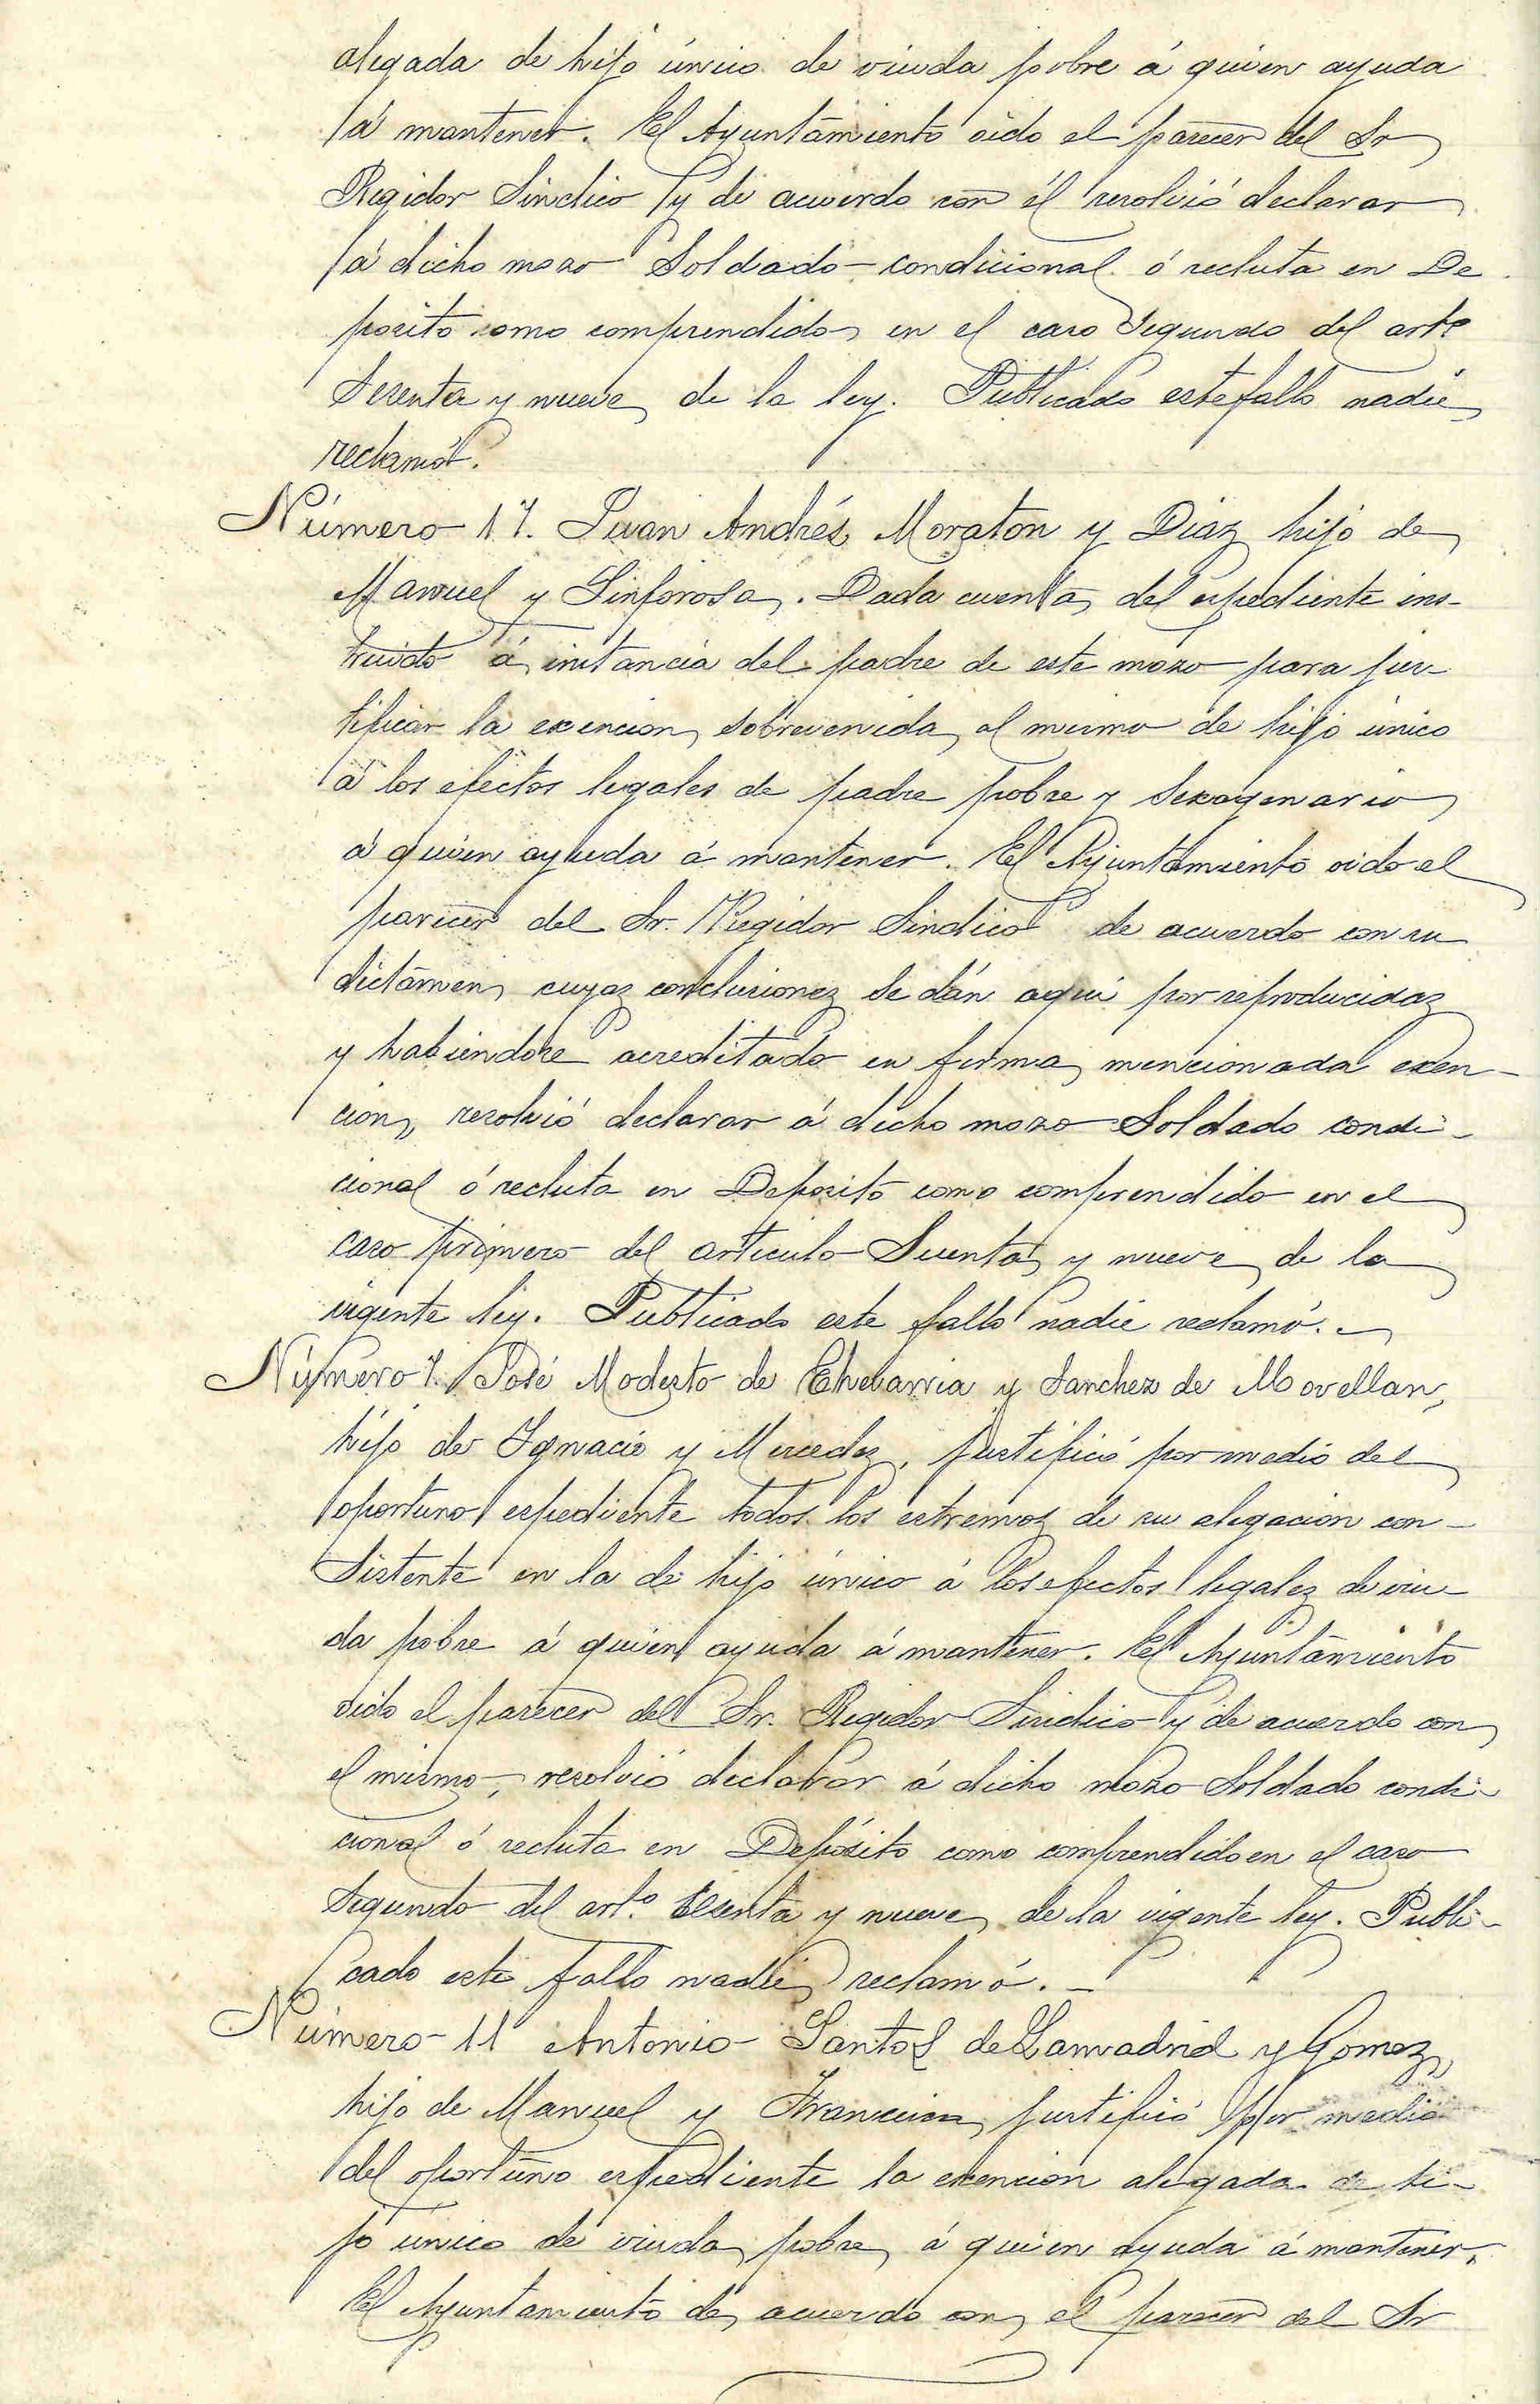 alegada de hijo único de viuda pobre á quien ayuda
á mantener. El Ayuntamiento oido el parecer del Sr
Regidor Sindico y de acuerdo con él resolvió declarar
á dicho mozo Soldado condicional ó recluta en De
posito como comprendido en el caso Segundo del artº
Sesenta y nueve de la ley. Publicado este fallo nadie
reclamó.
Número 17. Juan Andrés Moraton y Diaz hijo de
Manuel y Sinforosa. Dada cuenta del espediente ins-
truido á instancia del padre de este mozo para jus-
tificar la exencion sobrevenida al mismo de hijo único
á los efectos legales de padre pobre y Sexagenario
á quien ayuda á mantener. El Ayuntamiento oido el
parecer del Sr. Regidor Sindico de acuerdo con su
dictámen cuyas conclusiones se dán aqui por reproducidas
y habiendose acreditado en forma mencionada exen-
cion, resolvió declarar á dicho mozo Soldado condi-
cional ó recluta en Deposito como comprendido en el
caso primero del articulo Sesenta y nueve de la
vigente ley. Publicado este fallo nadie reclamó. -
Número 7. José Modesto de Echevarria y Sanchez de Movellan,
hijo de Ignacio y Mercedes, justificó por medio del
oportuno espediente todos los estremos de su alegacion con-
sistente en la de hijo único á los efectos legales de viu-
da pobre á quien ayuda á mantener. El Ayuntamiento
oido el parecer del Sr. Regidor Sindico y de acuerdo con
el mismo, resolvió declarar á dicho mozo Soldado condi-
cional ó recluta en Depósito como comprendido en el caso
Segundo del artº. Sesenta y nueve de la vigente ley. Publi-
cado este fallo nadie reclamó. -
Número 11 Antonio Santos de Lamadrid y Gomez,
hijo de Manuel y Francisca justificó por medio
del oportuno espediente la exencion alegada de hi-
jo unico de viuda pobre á quien ayuda á mantener.
El Ayuntamiento de acuerdo con el parecer del Sr